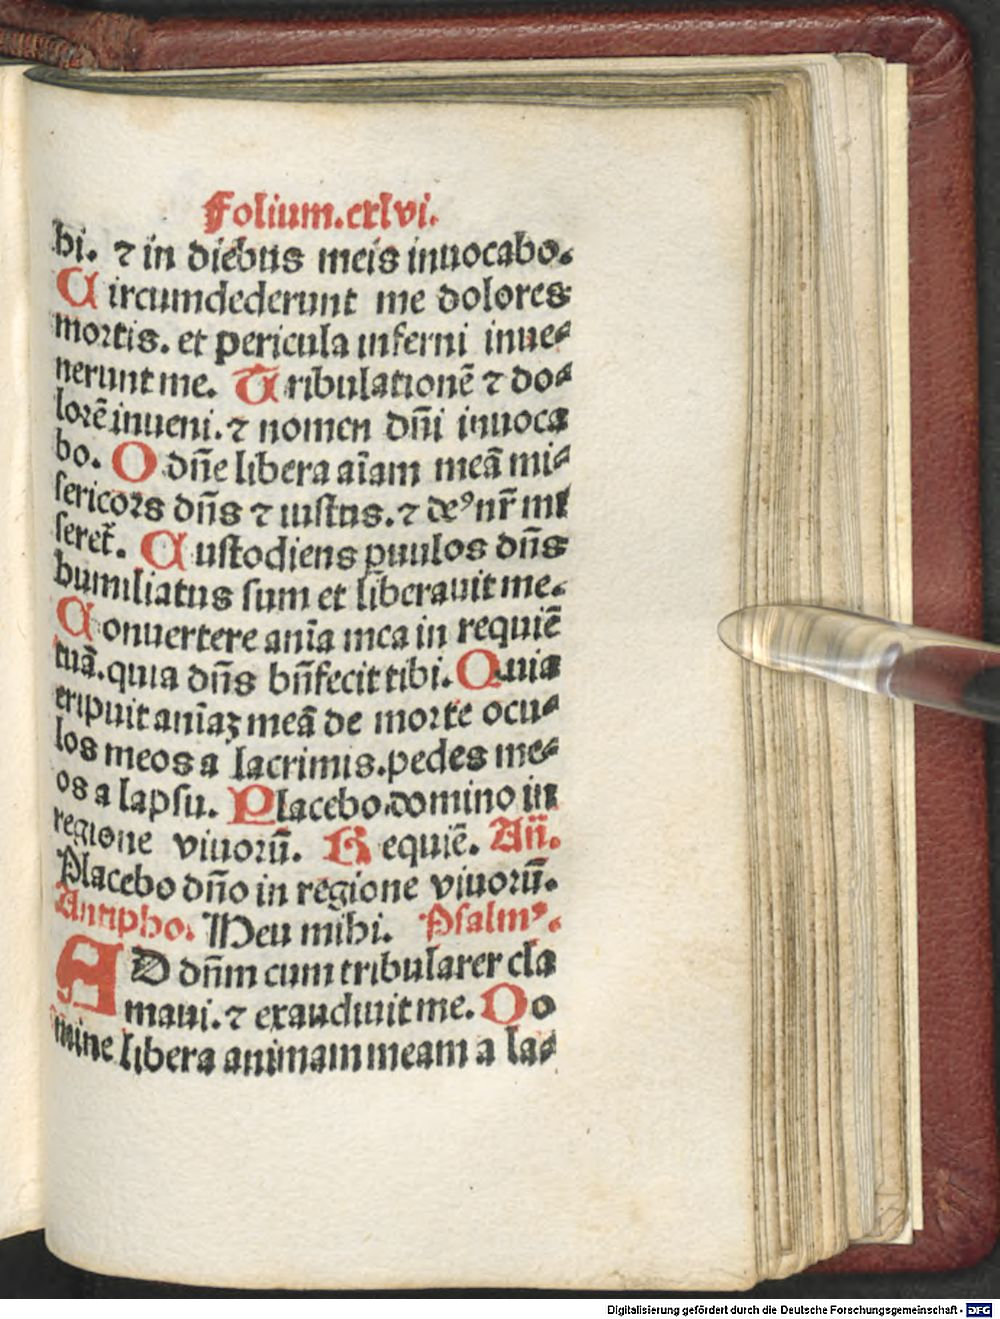 Folium.cxlvi.
bi. ⁊ in diebus meis inuocabo.
Circumdederunt me dolores
mortis. et pericula inferni inue⸗
nerunt me. Tribulationē ⁊ do⸗
lorē inueni. ⁊ nomen dn̄i inuoca
bo. O dn̄e libera aīam meā mi⸗
sericors dn̄s ⁊ iustus. ⁊ deꝰ nr̄ mi
seret̄. Custodiens ꝑuulos dn̄s
humiliatus sum et liberauit me.
Conuertere anīa mea in requiē
tuā. quia dn̄s bn̄fecit tibi. Quia
eripuit anīaꝫ meā de morte ocu⸗
los meos a lacrimis. pedes me⸗
os a lapsu. Placebo domino in
regione viuorū. Requiē. An̄.
Placebo dn̄o in regione viuorū.
Antipho. Heu mihi. Psalmꝰ.
AD dn̄m cum tribularer cla
maui. ⁊ exaudiuit me. Do
mine libera animam meam a la⸗
Digitalisierung gefördert durch die Deutsche Forschungsgemeinschaft - DFG